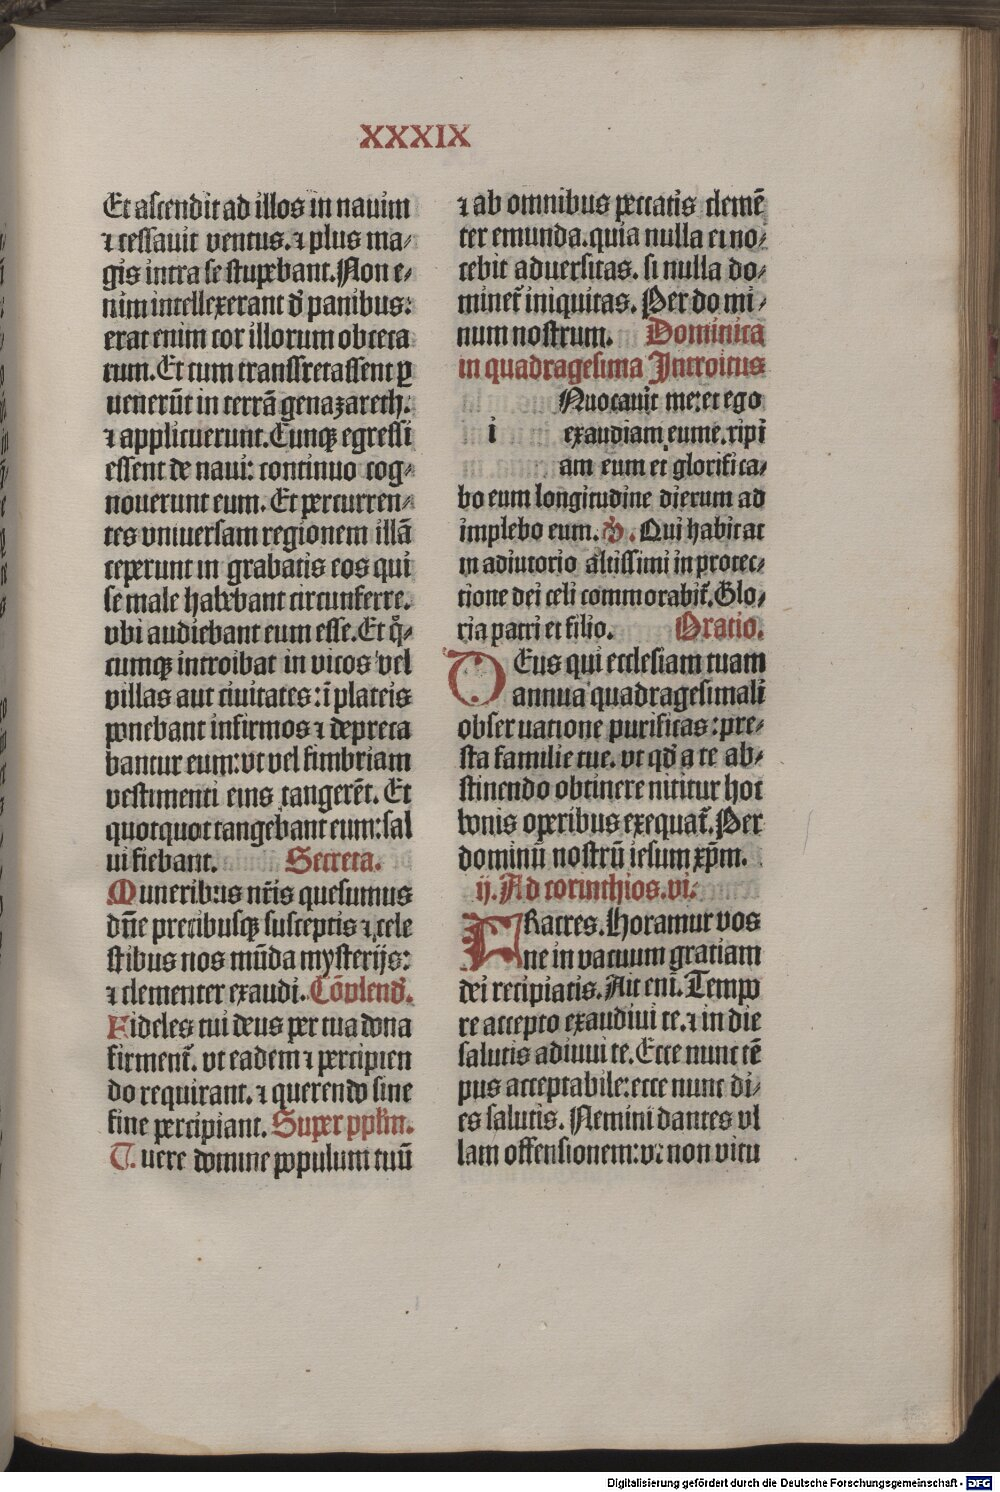 XXXIX
Et ascendit ad illos in nauim
⁊ cessauit ventus. ⁊ plus ma⸗
gis intra se stupebant. Non e⸗
nim intellexerant đ panibus:
erat enim cor illorum obceca
tum. Et cum transfretassent ꝑ
venerūt in terrā genazareth.
⁊ applicuerunt. Cunqꝫ egressi
essent de naui: continuo cog⸗
nouerunt eum. Et percurren⸗
tes vniuersam regionem illā
ceperunt in grabatis eos qui
se male habebant circunferre.
vbi audiebant eum esse. Et q̄⸗
cumqꝫ introibat in vicos vel
villas aut ciuitates: ī plateis
ponebant infirmos ⁊ depreca
bantur eum: vt vel fimbriam
vestimenti eius tangerēt. Et
quotquot tangebant eum: sal
ui fiebant. Secreta.
Muneribus nr̄is quesumus
dn̄e precibusqꝫ susceptis ⁊ cele
stibus nos mūda mysterijs:
⁊ clementer exaudi. Cōplend̄.
Fideles tui deus per tua dona
firment̄. vt eadem ⁊ percipien
do requirant. ⁊ querendo sine
fine percipiant. Super pplm̄.
T. uere domine populum tuū
⁊ ab omnibus peccatis clemē
ter emunda. quia nulla ei no⸗
cebit aduersitas. si nulla do⸗
minet̄ iniquitas. Per do mi⸗
num nostrum. Dominica
in quadragesima Introitus
Nuocauit me: et ego
i exaudiam eum e. ripi
am eum et glorifica⸗
bo eum longitudine dierum ad
implebo eum. ps̄. Qui habitat
in adiutorio altissimi in protec⸗
tione dei celi commorabit̄. Glo⸗
ria patri et filio. Oratio.
DEus qui ecclesiam tuam
annua quadragesimali
obser uatione purificas: pre⸗
sta familie tue. vt qd̄ a te ab⸗
stinendo obtinere nititur hoc
bonis operibus exequat̄. Per
dominū nostrū iesum xp̄m.
ij. Ad corinthios. vi.
FRatres. Hortamur vos
ne in vacuum gratiam
dei recipiatis. Ait eni̅. Tempo
re accepto exaudiui te. ⁊ in die
salutis adiuui te. Ecce nunc tē
pus acceptabile: ecce nunc di⸗
es salutis. Nemini dantes vl
lam offensionem: vt non vitu
Digitalisierung gefördert durch die Deutsche Forschungsgemeinschaft - DFG